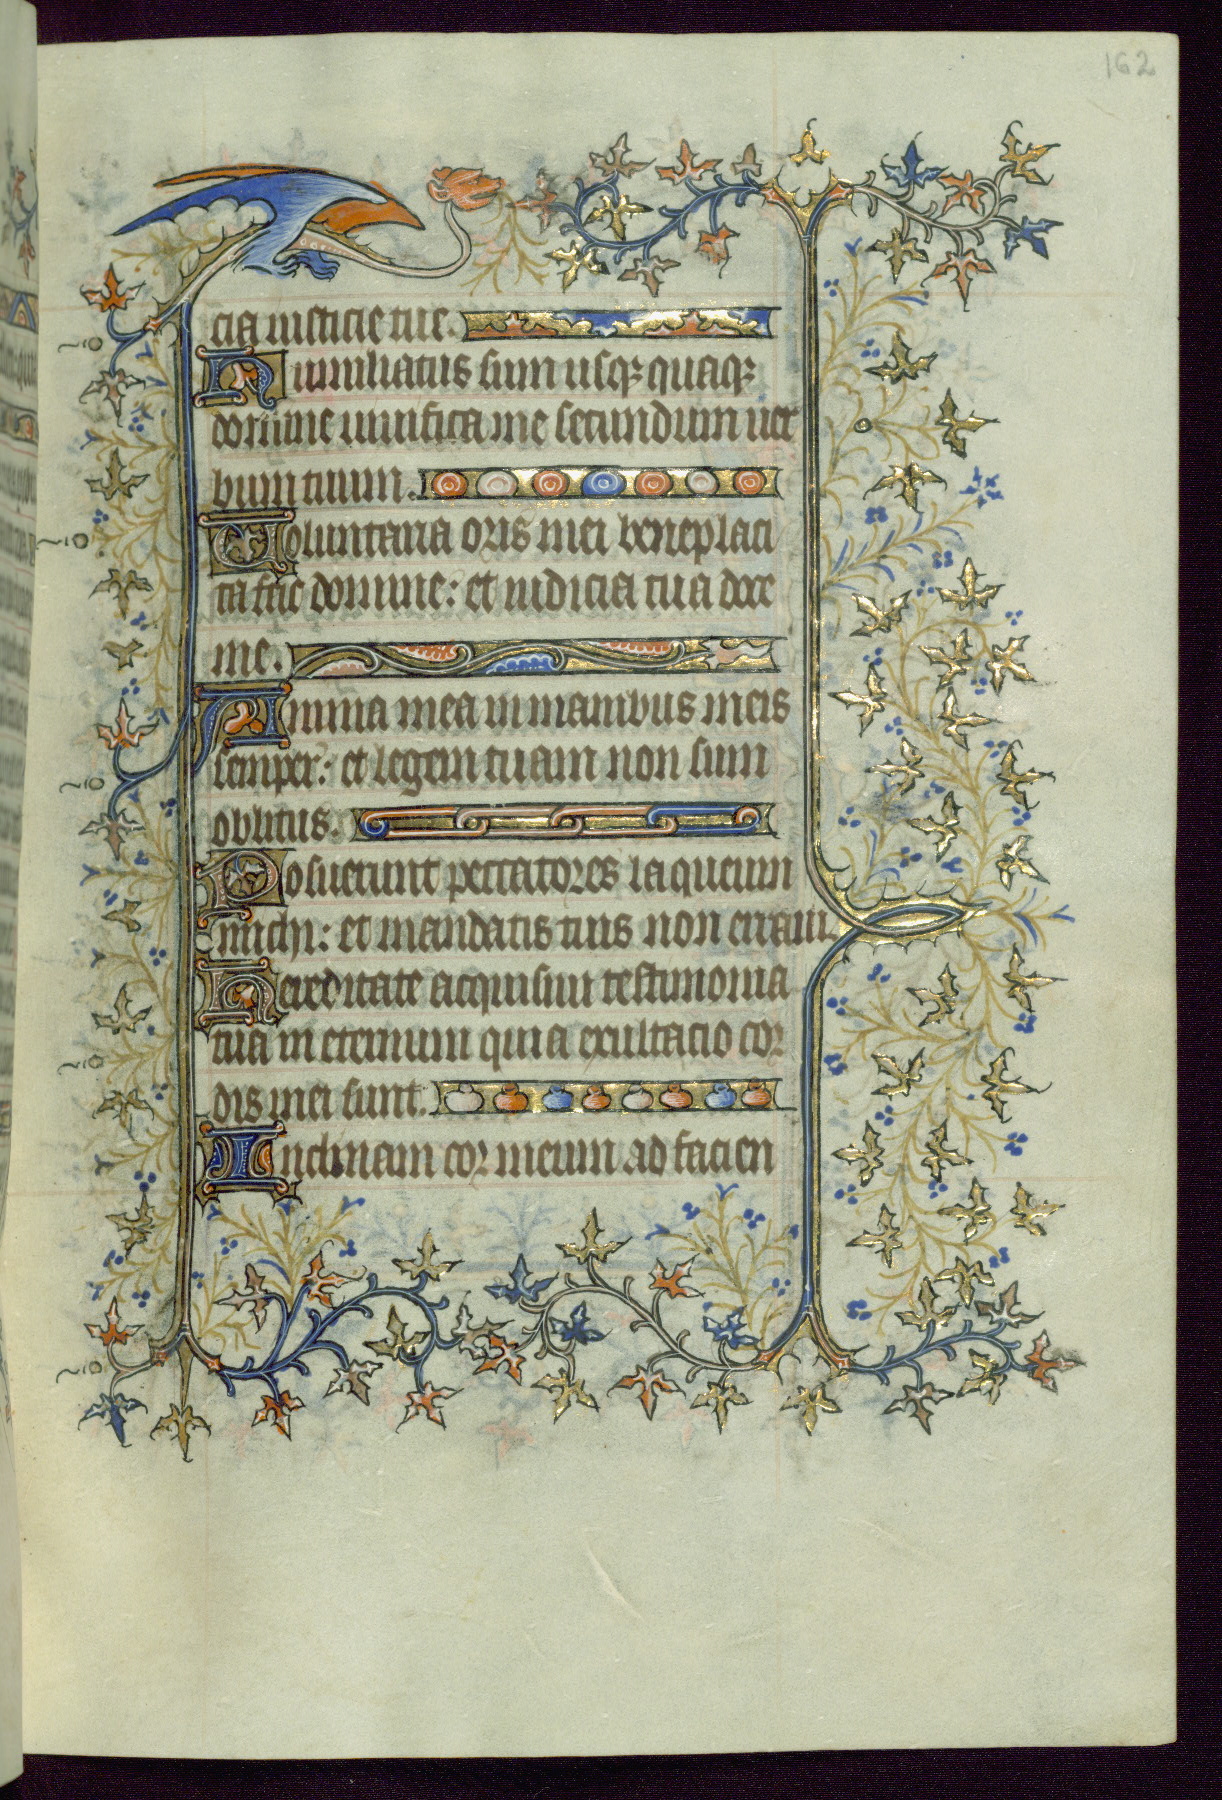 162
cia iusticie tue.
Humiliatus sum usqꝫ quaqꝫ
domine uiuifica me secundum uer
bum tuum.
Voluntaria oris mei beneplaci
ta fac domine: et iudicia tua doce
me.
Anima mea in manibus meis
semper: et legem tuam non sum
oblitus.
Posuerunt peccatores laqueum
michi: et mandatis tuis non erraui.
Hereditate acquisiui testimonia
tua in eternum quia exultacio cor
dis mei sunt.
Inclinaui cor meum ad facien